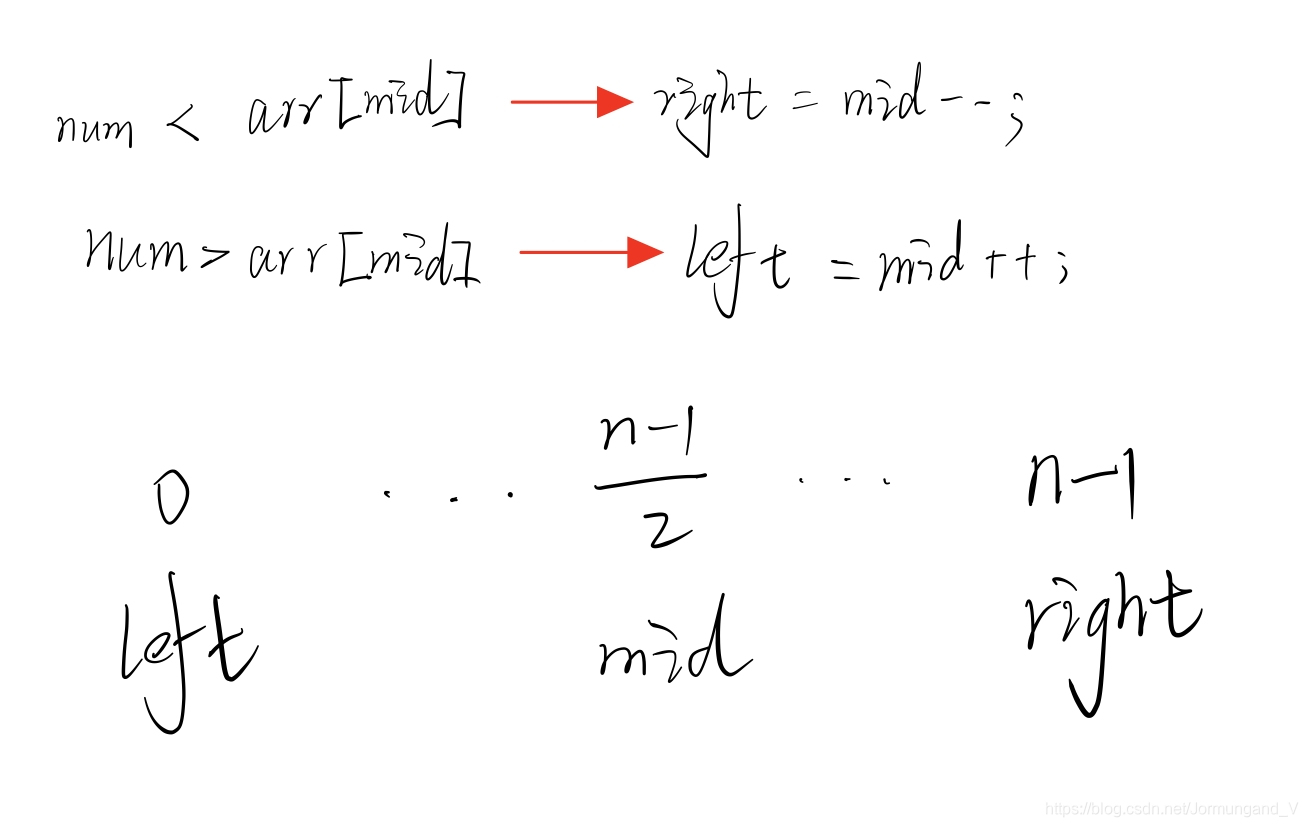 num < arr[mid] → right = mid--;
num > arr[mid] → left = mid++;
0 ... n-1/2 ... n-1
left mid right
https://blog.csdn.net/Jormungand_V